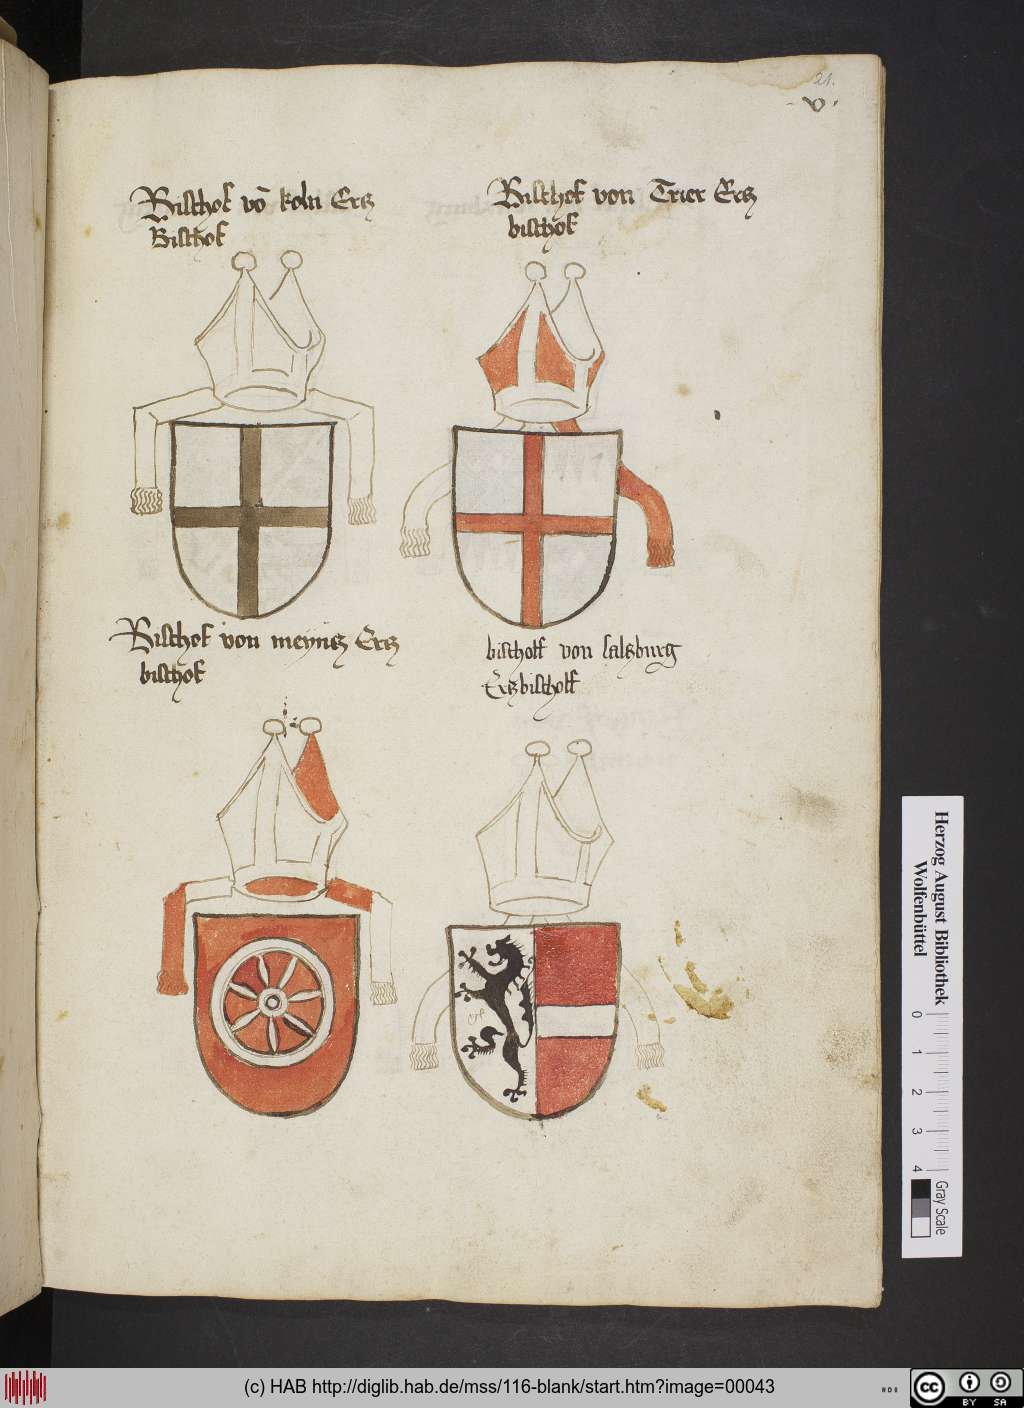 21.
v
Bischof võ koln Ertz
Bischof
Bischof von Trier Ertz
bischof
Bischof von meyntz Ertz
bischof
bischoff von saltzburg
Ertzbischoff
Herzog August Bibliothek
Wolfenbüttel
0 1 2 3 4
Gray Scale
(c) HAB http://diglib.hab.de/mss/116-blank/start.htm?image=00043
cc BY SA